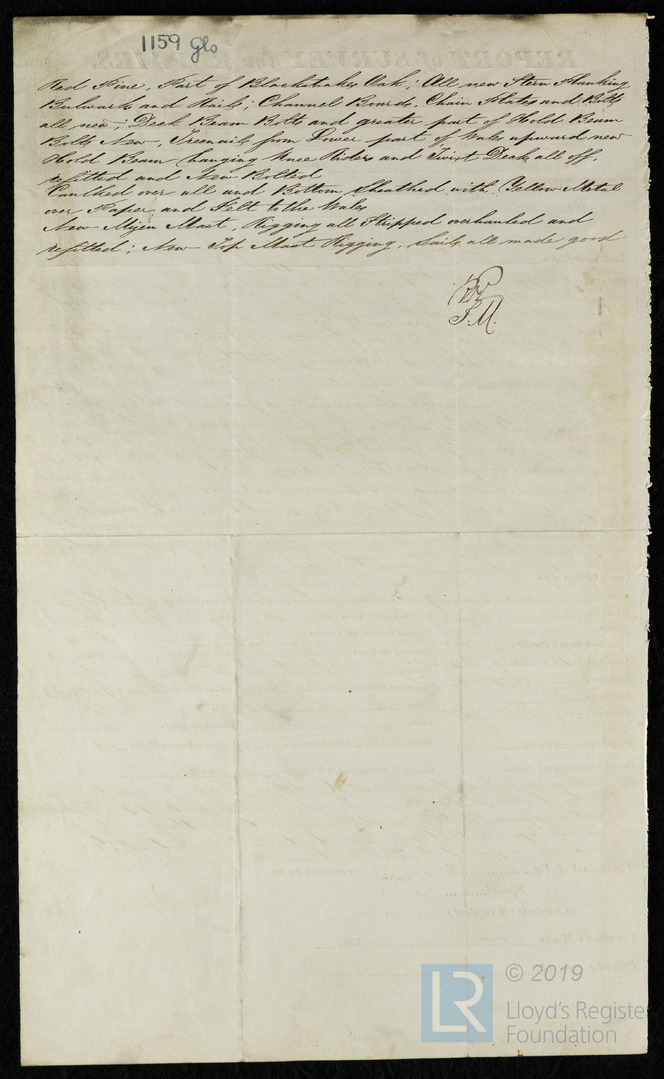 1159 Glo
Red Pine, Part of Blackstrakes Oak; All new Stern Planking
Bulwarks and Rails; Channel Boards, Chain Plates and Bolts
all new; Deck Beam Bolts and greater part of Hold Beam
Bolts New, Treenails from Lower part of Wales upward new
Hold Beam hanging Knee Riders and Twixt Deck all off,
refitted and New Bolted
Caulked over all and Bottom Sheathed with Yellow Metal
over Paper and Felt to the Wales
New Mizen Mast, Rigging all Stripped overhauled and
refitted; New Top Mast Rigging, Sails all made good
J.M.
© 2019
LR
Lloyd's Register
Foundation